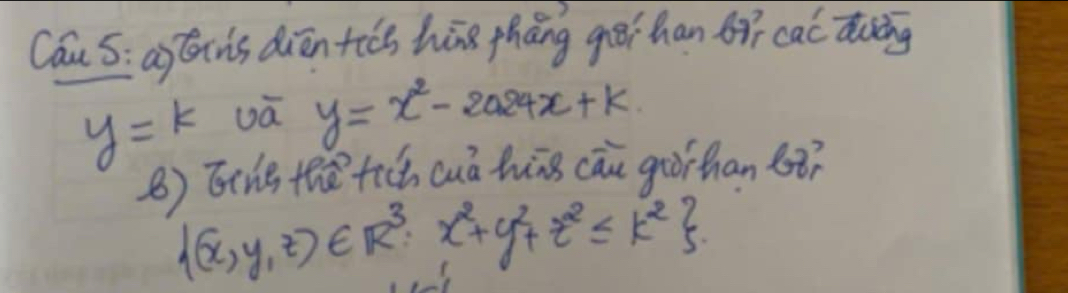 Câu 5: a) Tính diện tích hình phẳng giới hạn bởi các đường
y = k và y = x² - 2024x + k.
b) Tính thể tích của hình cầu giới hạn bởi
{(x, y, z) ∈ ℝ³: x² + y² + z² ≤ k²}.